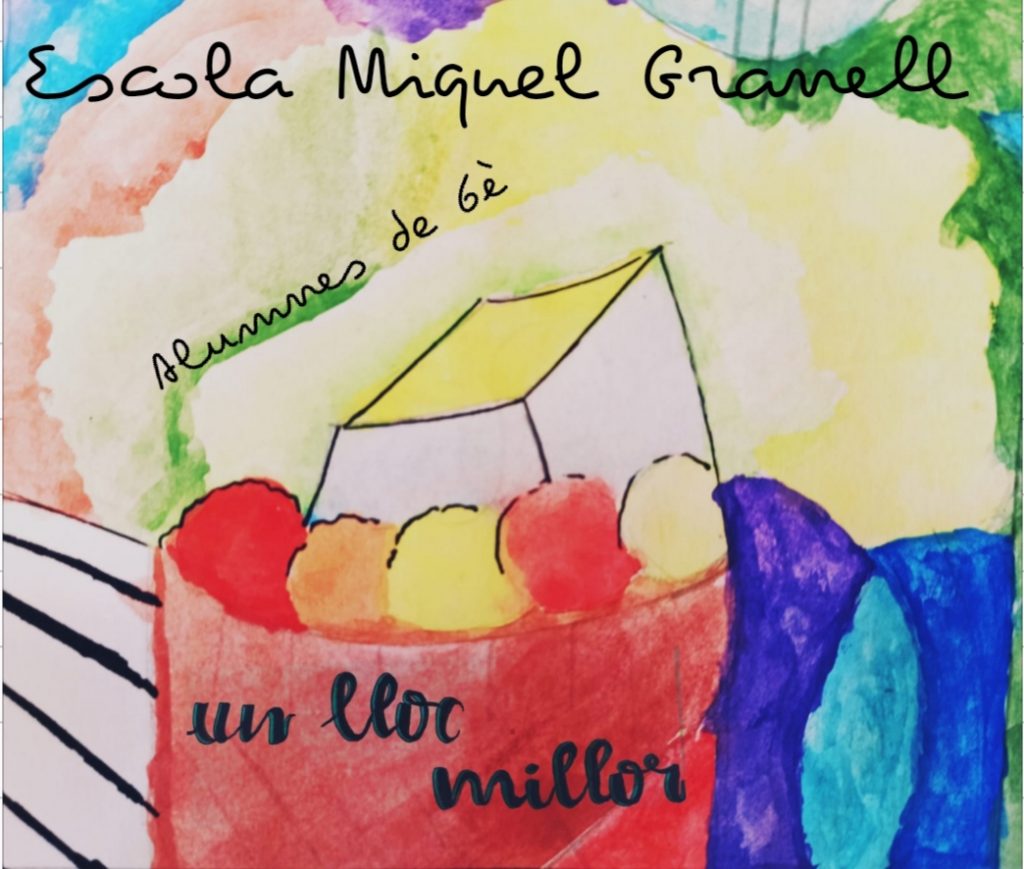 Escola Miquel Granell
Alumnes de 6è
un lloc
millor